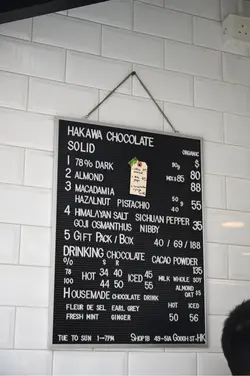 HAKAWA CHOCOLATE
SOLID ORGANIC
1 78% DARK 90g $ 80
2 ALMOND MIX & 85
3 MACADAMIA 88
HAZALNUT PISTACHIO 50g 55
4 HIMALAYAN SALT SICHUAN PEPPER 35
GOJI OSMANTHUS NIBBY
5 GIFT PACK / BOX 40 / 69 / 188
DRINKING CHOCOLATE CACAO POWDER
0/0 S R 135
78 HOT 34 40 ICED 45 MILK WHOLE SOY
100 44 50 55 ALMOND
OAT $5
HOUSEMADE CHOCOLATE DRINK HOT ICED
FLEUR DE SEL EARL GREY
FRESH MINT GINGER 50 56
TUE TO SUN 1-7PM SHOP1B 49-51A GOUGH ST-HK